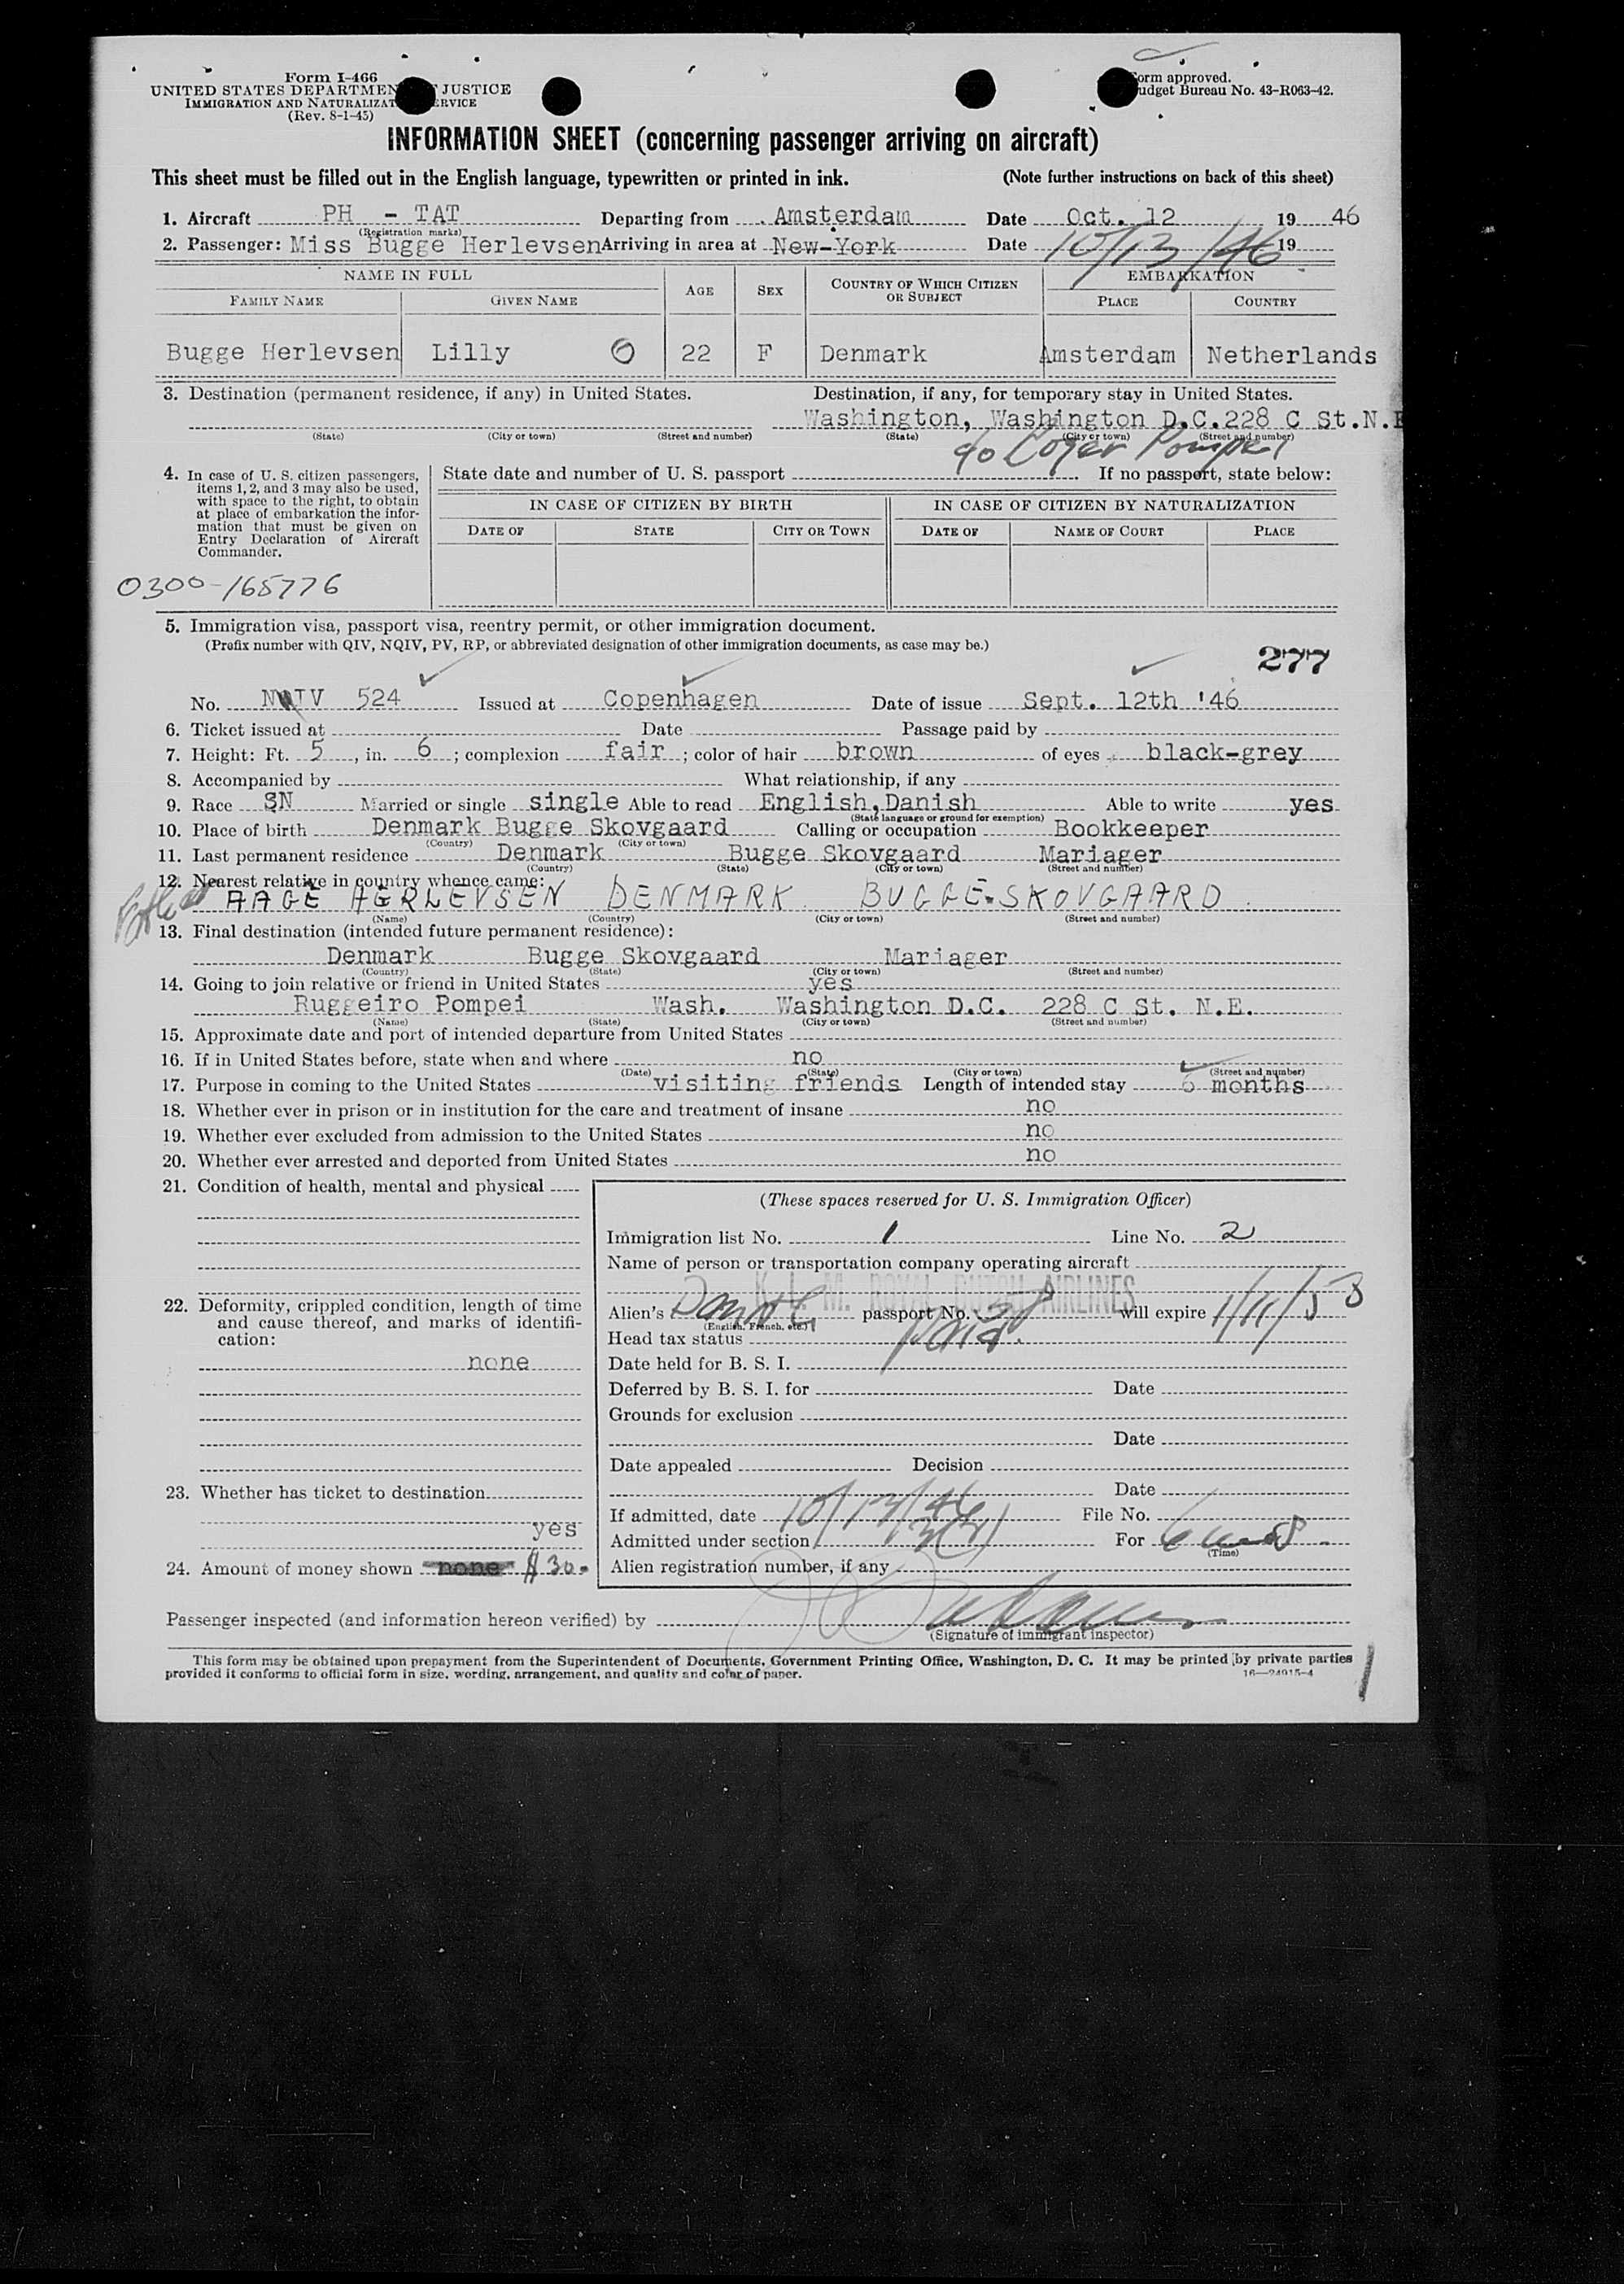 Form I-466
UNITED STATES DEPARTMEN JUSTICE
IMMIGRATION AND NATURALIZAT ERVICE
(Rev. 8-1-45)
orm approved.
udget Bureau No. 43-R063-42.
INFORMATION SHEET (concerning passenger arriving on aircraft)
This sheet must be filled out in the English language, typewritten or printed in ink. (Note further instructions on back of this sheet)
1. Aircraft PH - TAT Departing from Amsterdam Date Oct. 12 19 46
(Registration marks)
2. Passenger: Miss Bugge Herlevsen Arriving in area at New-York Date 10/13/46 19
NAME IN FULL AGE SEX COUNTRY OF WHICH CITIZEN OR SUBJECT EMBARKATION
FAMILY NAME GIVEN NAME PLACE COUNTRY
Bugge Herlevsen Lilly 0 22 F Denmark Amsterdam Netherlands
3. Destination (permanent residence, if any) in United States. Destination, if any, for temporary stay in United States.
Washington, Washington D.C. 228 C St.N.E
(State) (City or town) (Street and number) (State) (City or town) (Street and number)
c/o Roger Pompei
4. In case of U. S. citizen passengers, items 1, 2, and 3 may also be used, with space to the right, to obtain at place of embarkation the information that must be given on Entry Declaration of Aircraft Commander.
State date and number of U. S. passport If no passport, state below:
IN CASE OF CITIZEN BY BIRTH IN CASE OF CITIZEN BY NATURALIZATION
DATE OF STATE CITY OR TOWN DATE OF NAME OF COURT PLACE
0300-165776
5. Immigration visa, passport visa, reentry permit, or other immigration document.
(Prefix number with QIV, NQIV, PV, RP, or abbreviated designation of other immigration documents, as case may be.)
277
No. NQIV 524 Issued at Copenhagen Date of issue Sept. 12th '46
6. Ticket issued at Date Passage paid by
7. Height: Ft. 5, in. 6; complexion fair; color of hair brown of eyes black-grey
8. Accompanied by What relationship, if any
9. Race SN Married or single single Able to read English, Danish Able to write yes
(State language or ground for exemption)
10. Place of birth Denmark Bugge Skovgaard Calling or occupation Bookkeeper
(Country) (City or town)
11. Last permanent residence Denmark Bugge Skovgaard Mariager
(Country) (State) (City or town) (Street and number)
12. Nearest relative in country whence came:
Father AAGE HERLEVSEN DENMARK BUGGE-SKOVGAARD
(Name) (Country) (City or town) (Street and number)
13. Final destination (intended future permanent residence):
Denmark Bugge Skovgaard Mariager
(Country) (State) (City or town) (Street and number)
14. Going to join relative or friend in United States yes
Ruggeiro Pompei Wash. Washington D.C. 228 C St. N.E.
(Name) (State) (City or town) (Street and number)
15. Approximate date and port of intended departure from United States
16. If in United States before, state when and where no
(Date) (State) (City or town) (Street and number)
17. Purpose in coming to the United States visiting friends Length of intended stay 6 months
18. Whether ever in prison or in institution for the care and treatment of insane no
19. Whether ever excluded from admission to the United States no
20. Whether ever arrested and deported from United States no
21. Condition of health, mental and physical
22. Deformity, crippled condition, length of time and cause thereof, and marks of identification:
none
23. Whether has ticket to destination
yes
24. Amount of money shown none $30.
(These spaces reserved for U. S. Immigration Officer)
Immigration list No. 1 Line No. 2
Name of person or transportation company operating aircraft
K. L. M. ROYAL DUTCH AIRLINES
Alien's Danish passport No. will expire 1/11/53
(English, French, etc.)
Head tax status Paid.
Date held for B. S. I.
Deferred by B. S. I. for Date
Grounds for exclusion
Date
Date appealed Decision
Date
If admitted, date 10/13/46 File No.
Admitted under section 3(2) For 6 mos
(Time)
Alien registration number, if any
Passenger inspected (and information hereon verified) by
(Signature of immigrant inspector)
This form may be obtained upon prepayment from the Superintendent of Documents, Government Printing Office, Washington, D. C. It may be printed by private parties
provided it conforms to official form in size, wording, arrangement, and quality and color of paper. 16—24915-4